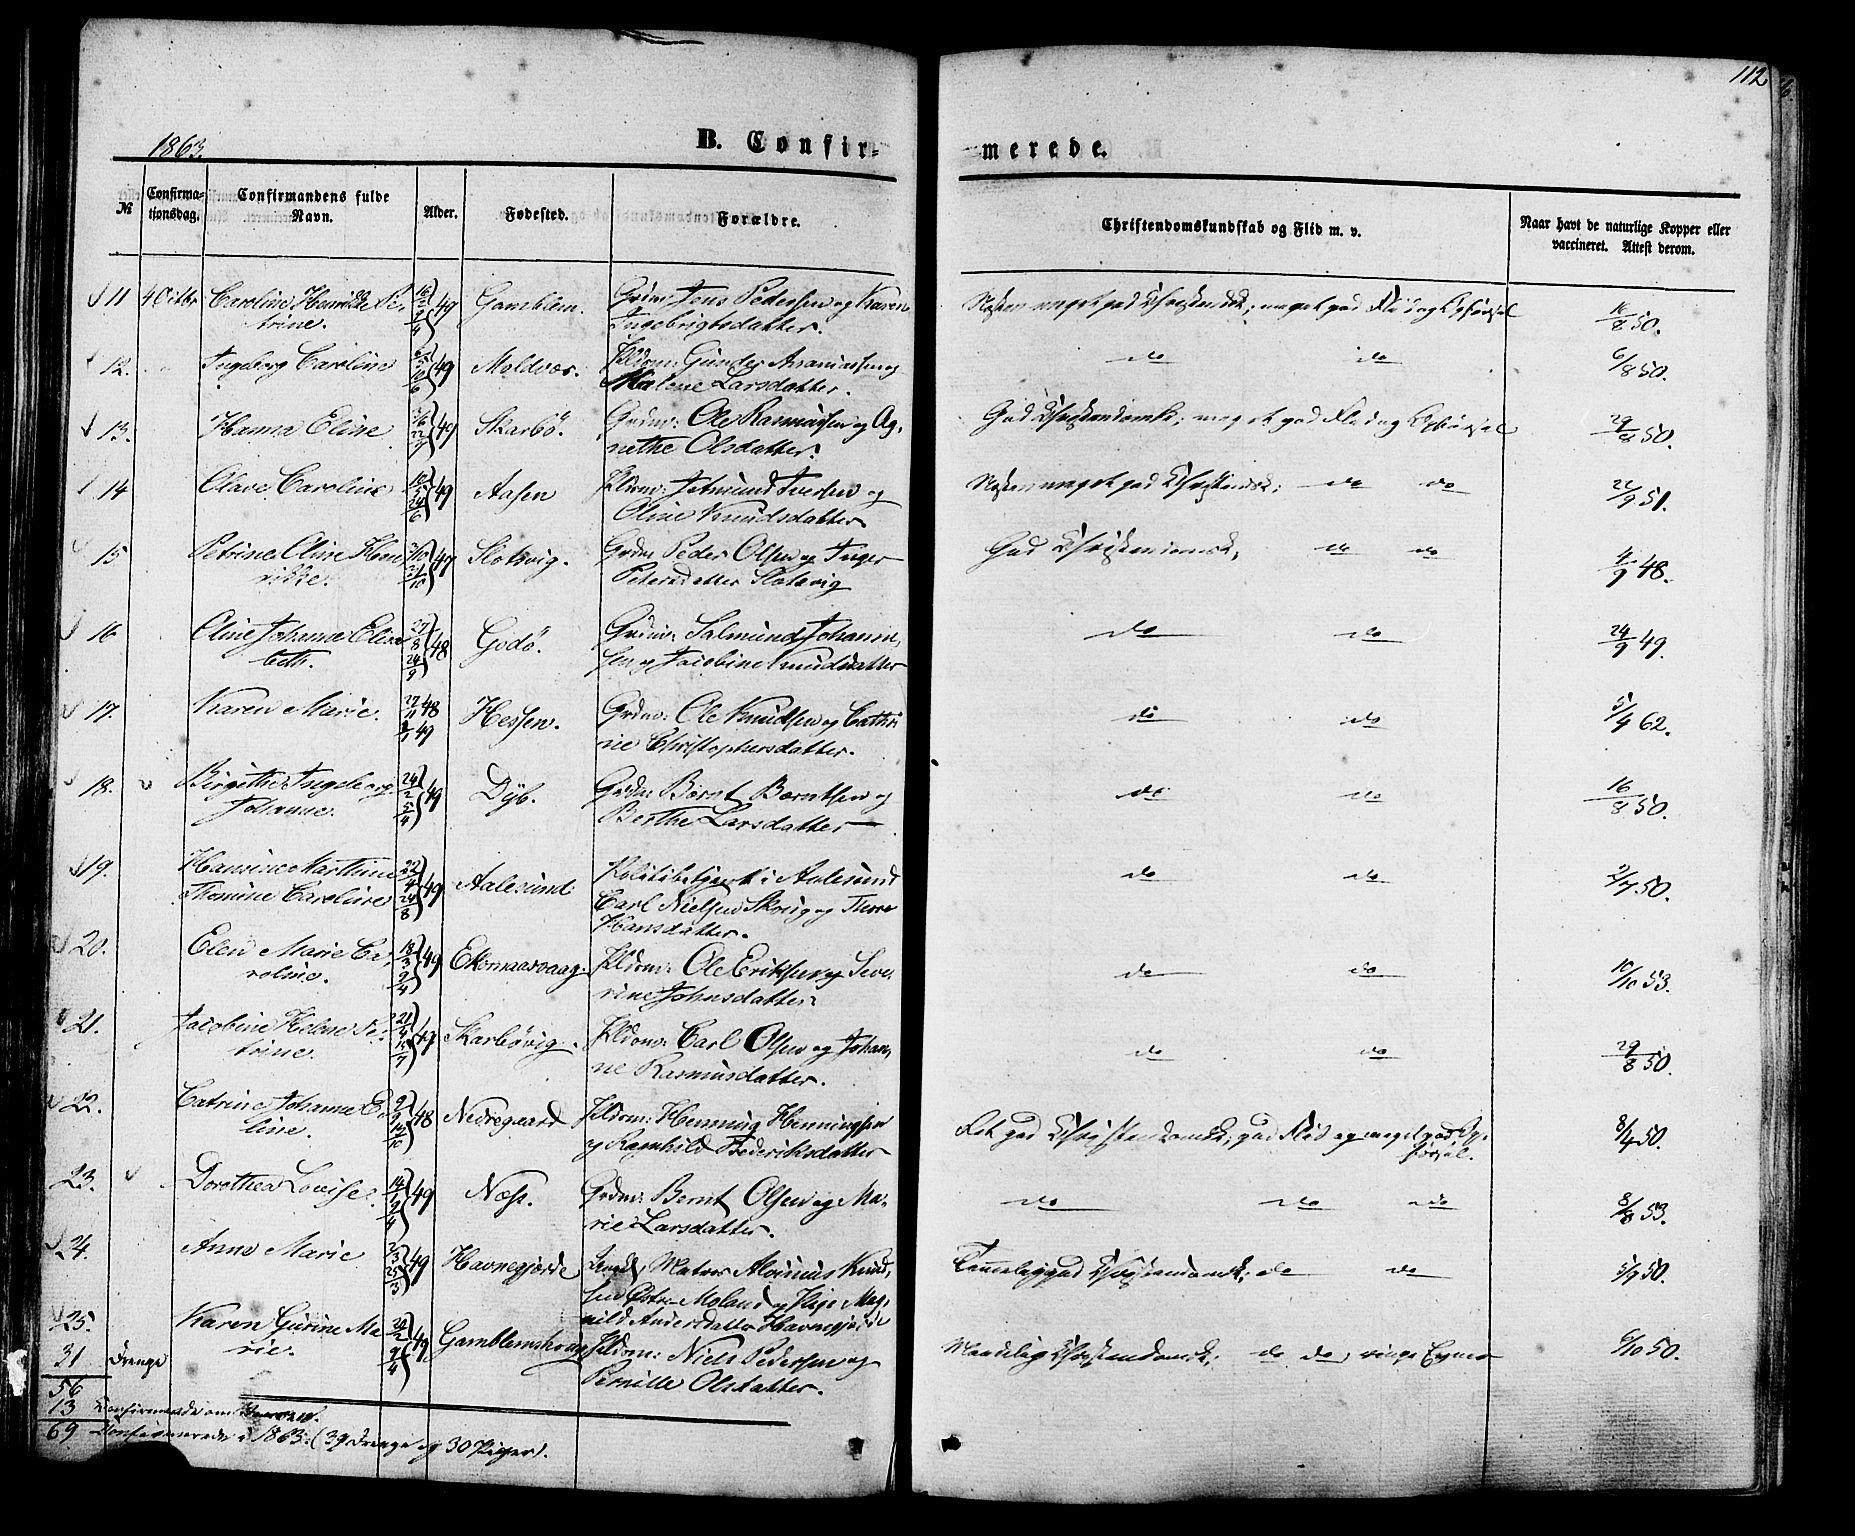 112
1863.
B. Confir-
merede.
№
Confirma-
tjonsdag.
Confirmandens fulde
Navn.
Alder.
Fødested.
Forældre.
Christendomskundskab og Flid m. v.
Naar havt de naturlige Kopper eller
vaccineret. Attest derom.
11 4 Octbr Caroline Henrikke Pe-
trine. 49 Gamblem. Grdm: Jens Pedersen og Karen
Ingebrigtsdatter. Næsten meget god Christendsk; meget god Flid og Opførsel 16/8 50.
12. Ingeborg Caroline 49 Moldvær. Gunder Ananiassen og
Malene Larsdatter. do do 6/8 50.
13. Hanna Eline 49 Skarbö. Grdm: Ole Rasmussen og Ag-
nethe Olsdatter. God Christendomsk; meget god Flid og Opførsel 29/8 50.
14 Olave Caroline 49 Aasen Iversen og
Oline Knudsdatter. Næsten meget god Christendsk; do do 22/9 51.
15 Petrine Oline Hen-
rikke. 49 Slotsvig. Grdm: Peder Olsen og Inger
Petersdatter Slotsvig God Christendomsk; do do 4/9 48.
16 Oline Johanne Elisa-
beth. 27/8 24/9 48 Godö. Grdm: Salmund Johann-
sen og Jacobine Knudsdatter do do 24/9 49.
17. Karen Marie. 27/11 48
1/1 49 Hessen. Grdm: Ole Knudsen og Cathri
ne Christophersdatter. do do 5/4 62.
18. Birgithe Ingeborg
Johanne. 24/2 5/4 49 Dyb. Grdm: Bernt Berntsen og
Berthe Larsdatter do do 16/8 50.
19. Hansine Marthine
Thomine Caroline 22/4 24/8 49 Aalesund Politibetjent i Aalesund
Carl Nielsen og
Hansdatter. do do 2/7 50.
20. Elen Marie Ca-
roline. 18/3 9/4 49 Ole Eriksen og Seve-
rine Johnsdatter. do do 10/10 53.
21. Jacobine Helene Pe-
trine. 49 Skarbövig. Carl Olsen og Johan-
ne Rasmusdatter. do do 29/8 50.
22. Catrine Johanne E-
line. 48 Nedregaard Henning Henningsen
og Ragnhild Frederiksdatter Ret god Christendomsk; god Flid og meget god Op-
førsel. 8/4 50.
23. Dorothea Lovise. 14/1 9/4 49 Næss. Grdm: Bernt Olsen og Ma-
rie Larsdatter. do do do 8/8 53.
24. Anne Marie 2/3 25/3 49 Havnegjerde Matros Knud-
sen og Pige Mag-
nild Andersdatter Havnegjerde Temmelig god Christendomsk; do do 5/9 50.
25. Karen Gurine Ma-
rie. 49 Gamblemshoug Niels Pedersen og
Pernille Olsdatter. Maadelig Christendomsk; do do, ringe Evner 6/10 50.
31 Drenge
56
13 Confirmerede om
69 Confirmerede i 1863: (39 Drenge og 30 Piger).